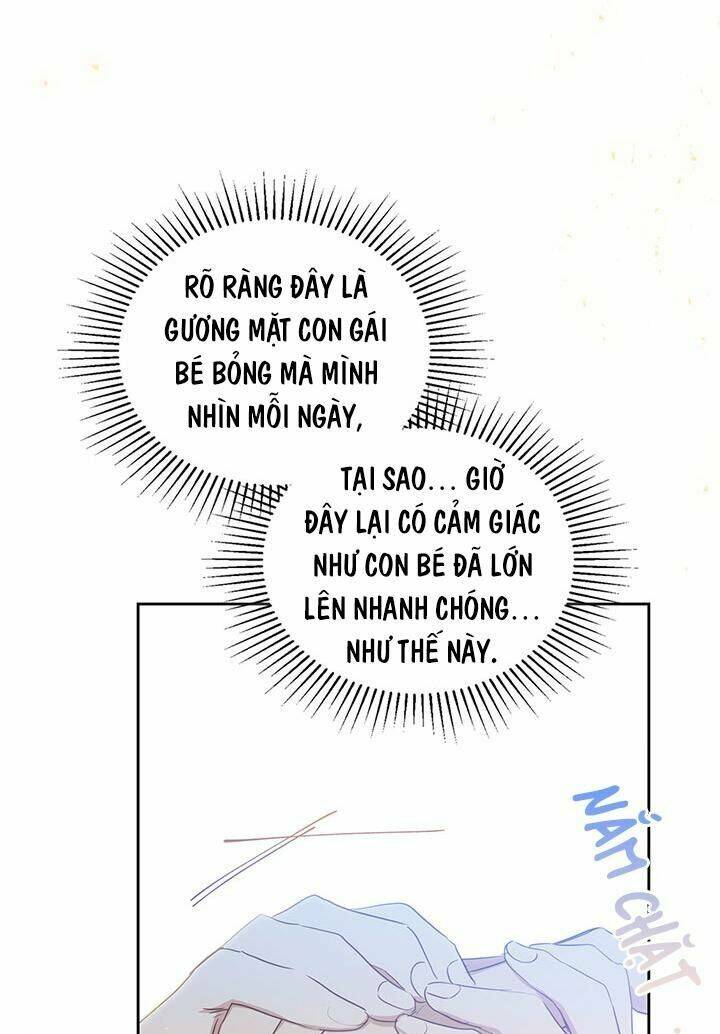 RÕ RÀNG ĐÂY LÀ
GƯƠNG MẶT CON GÁI
BÉ BỎNG MÀ MÌNH
NHÌN MỖI NGÀY,
TẠI SAO... GIỜ
ĐÂY LẠI CÓ CẢM GIÁC
NHƯ CON BÉ ĐÃ LỚN
LÊN NHANH CHÓNG...
NHƯ THẾ NÀY.
NẮM CHẶT